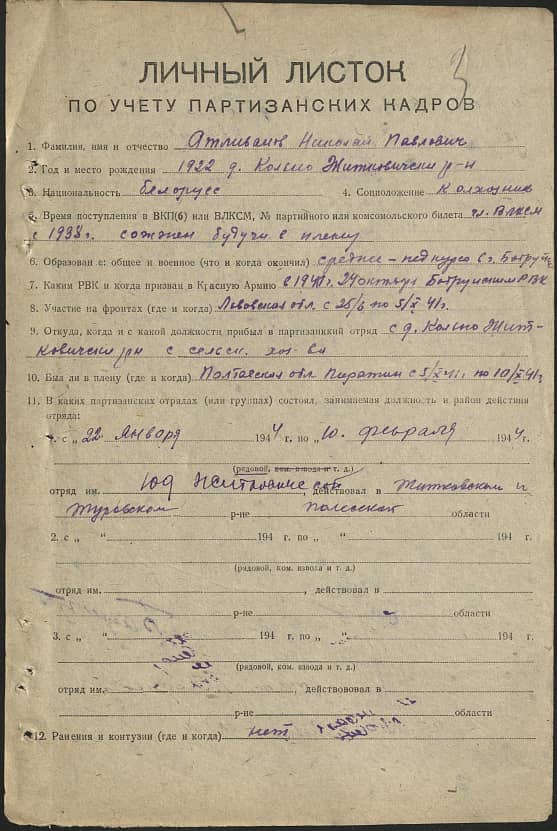 3
ЛИЧНЫЙ ЛИСТОК
ПО УЧЕТУ ПАРТИЗАНСКИХ КАДРОВ
1. Фамилия, имя и отчество Атливанов Николай Павлович
2. Год и место рождения 1922 д. Кольно Житковический р-н
3. Национальность белорусс 4. Соцположение Колхозник
5. Время поступления в ВКП(б) или ВЛКСМ, № партийного или комсомольского билета чл. Влксм
с 1938 г. сожжен будучи в плену
6. Образован е: общее и военное (что и когда окончил) среднее - педкурсы в г. Бобруйск
7. Каким РВК и когда призван в Красную Армию в 1940 г. 24 октября Бобруйским РВК
8. Участие на фронтах (где и когда) Львовская обл. с 25/6 по 5/X 41 г.
9. Откуда, когда и с какой должности прибыл в партизанкий отряд с д. Кольно Жит-
ковический рн с сельск. хоз-ва
10. Был ли в плену (где и когда) Полтавская обл Пирятин с 5/X 41 г. по 10/X 41 г.
11. В каких партизанских отрядах (или группах) состоял, занимаемая должность и район действия
отряда:
1. с „22 января 1944 г. по „10. февраля 1944 г.
(рядовой, ком. взвода и т. д.)
отряд им. 109 , действовал в Житковском и
Туровском р-не Полесской области
2. с „ “ 194 г. по „ “ 194 г.
(рядовой, ком. взвода и т. д.)
отряд им. , действовал в
р-не области
3. с „ “ 194 г. по „ “ 194 г.
(рядовой, ком. взвода и т. д.)
отряд им. , действововал в
р-не области
12. Ранения и контузии (где и когда) нет